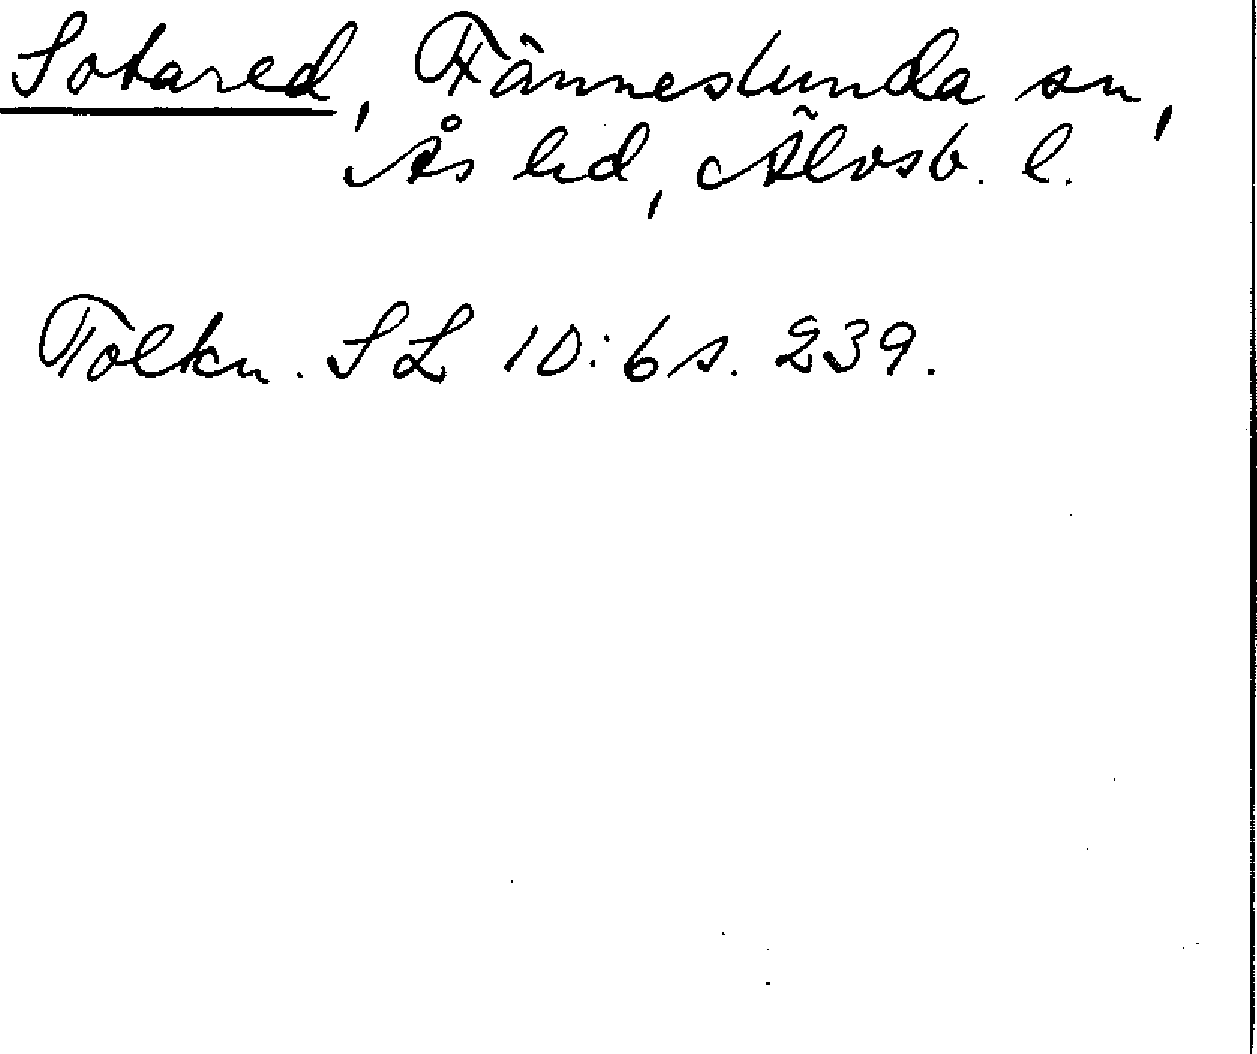 Sotared, Fänneslunda sn,
Ås hd, Älvsb. l.
Tolkn. SL 10:6 s. 239.